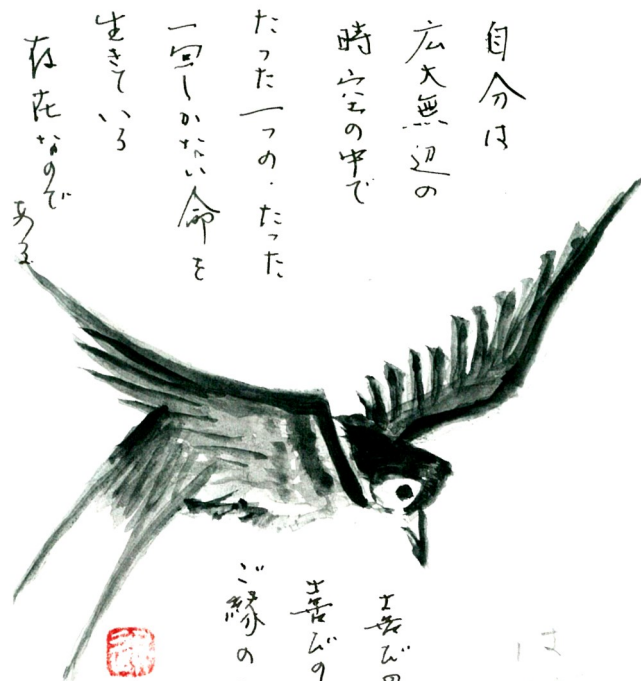 自分は
広大無辺の
時空の中で
たった一つの・たった
一回しかない命を
生きている
存在なので
ある
は
喜びの
喜びの
ご縁の